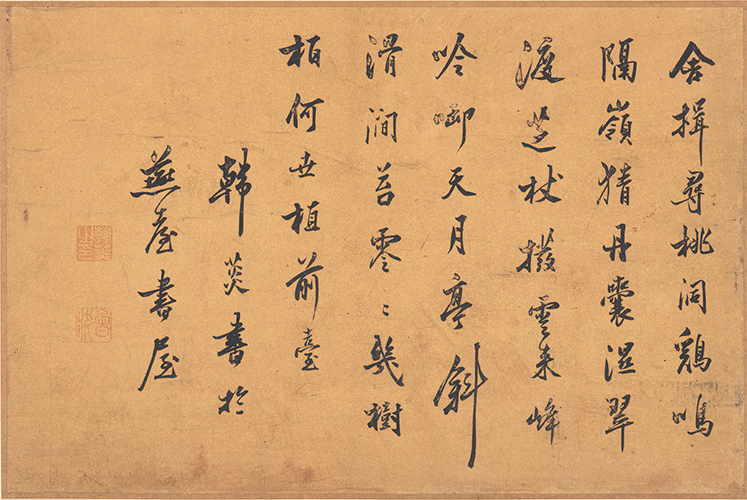 舍楫尋桃洞鷄鳴
隔嶺猜丹囊濕翠
渡芝杖撥雲来峰
吟啣天月亭斜
滑澗苔零〻幾樹
栢何世植前臺
韓菼書於
燕臺書屋